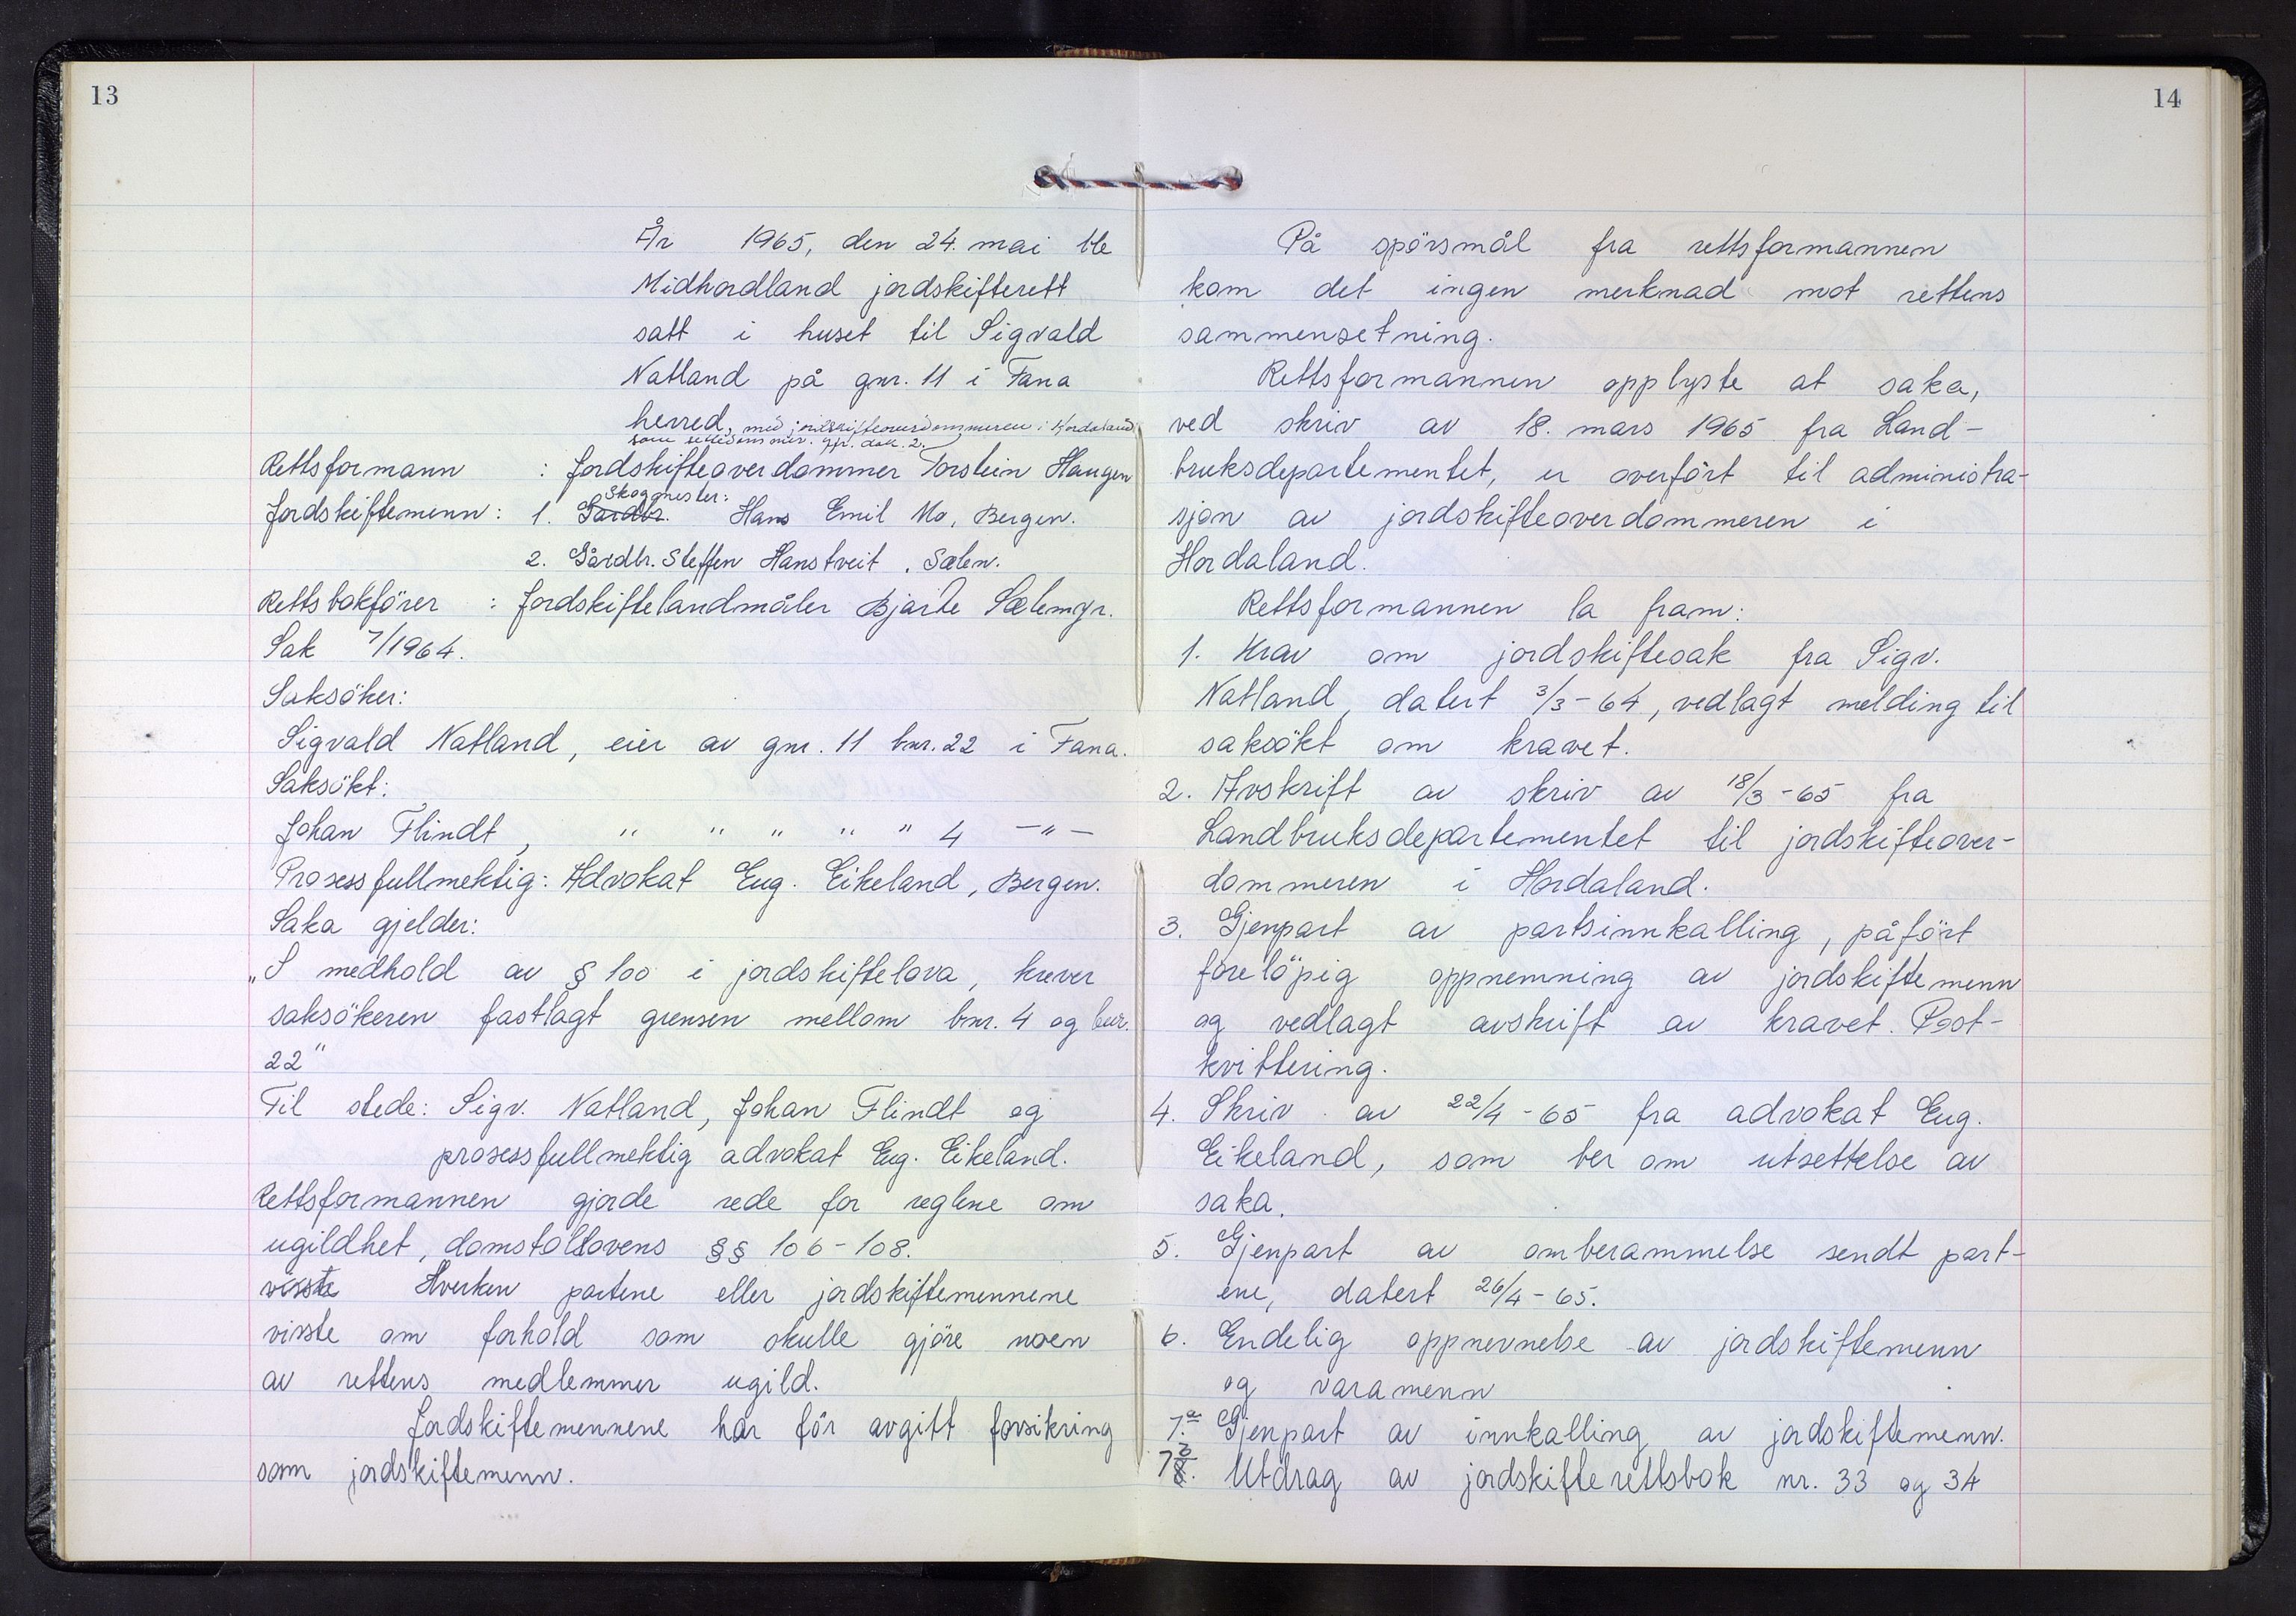 13
År 1965, den 24. mai ble
Midhordland jordskifterett
satt i huset til Sigvald
Natland på gnr. 11 i Fana
herred, med jordskifteoverdommeren i Hordaland
som settedommer. jfr. dok. 2.
Rettsformann : Jordskifteoverdommer Torstein Haugen
Skogmester:
Jordskiftemenn: 1. Gardbr. Hans Emil Mo, Bergen.
2. Gårdbr. Steffen Hanstveit, Sælen.
Rettsbokförer : Jordskiftelandmåler Bjarte Sælemyr.
Sak 7/1964.
Saksöker:
Sigvald Natland, eier av gnr. 11 bnr. 22 i Fana.
Saksökt:
Johan Flindt, " " " " " 4 —"—
Prosessfullmektig: Advokat Eug. Eikeland, Bergen.
Saka gjelder:
„I medhold av § 100 i jordskiftelova, krever
saksökeren fastlagt grensen mellom bnr. 4 og bnr.
22"
Til stede: Sigv. Natland, Johan Flindt og
prosessfullmektig advokat Eug. Eikeland.
Rettsformannen gjorde rede for reglene om
ugildhet, domstollovens §§ 106-108.
visste Hverken partene eller jordskiftemennene
visste om forhold som skulle gjöre noen
av rettens medlemmer ugild.
Jordskiftemennene har för avgitt forsikring
som jordskiftemenn.
14
På spörsmål fra rettsformannen
kom det ingen merknad mot rettens
sammensetning.
Rettsformannen opplyste at saka,
ved skriv av 18. mars 1965 fra Land-
bruksdepartementet, er overfört til administra-
sjon av jordskifteoverdommeren i
Hordaland.
Rettsformannen la fram:
1. Krav om jordskiftesak fra Sigv.
Natland, datert 3/3-64, vedlagt melding til
saksökt om kravet.
2. Avskrift av skriv av 18/3-65 fra
Landbruksdepartementet til jordskifteover-
dommeren i Hordaland.
3. Gjenpart av partsinnkalling, påfört
forelöpig oppnemning av jordskiftemenn
og vedlagt avskrift av kravet. Post-
kvittering.
4. Skriv av 22/4-65 fra advokat Eug.
Eikeland, som ber om utsettelse av
saka.
5. Gjenpart av omberammelse sendt part-
ene, datert 26/4-65.
6. Endelig oppnevnelse av jordskiftemenn
og varamenn
7.a Gjenpart av innkalling av jordskiftemenn.
7b 8. Utdrag av jordskifterettsbok nr. 33 og 34